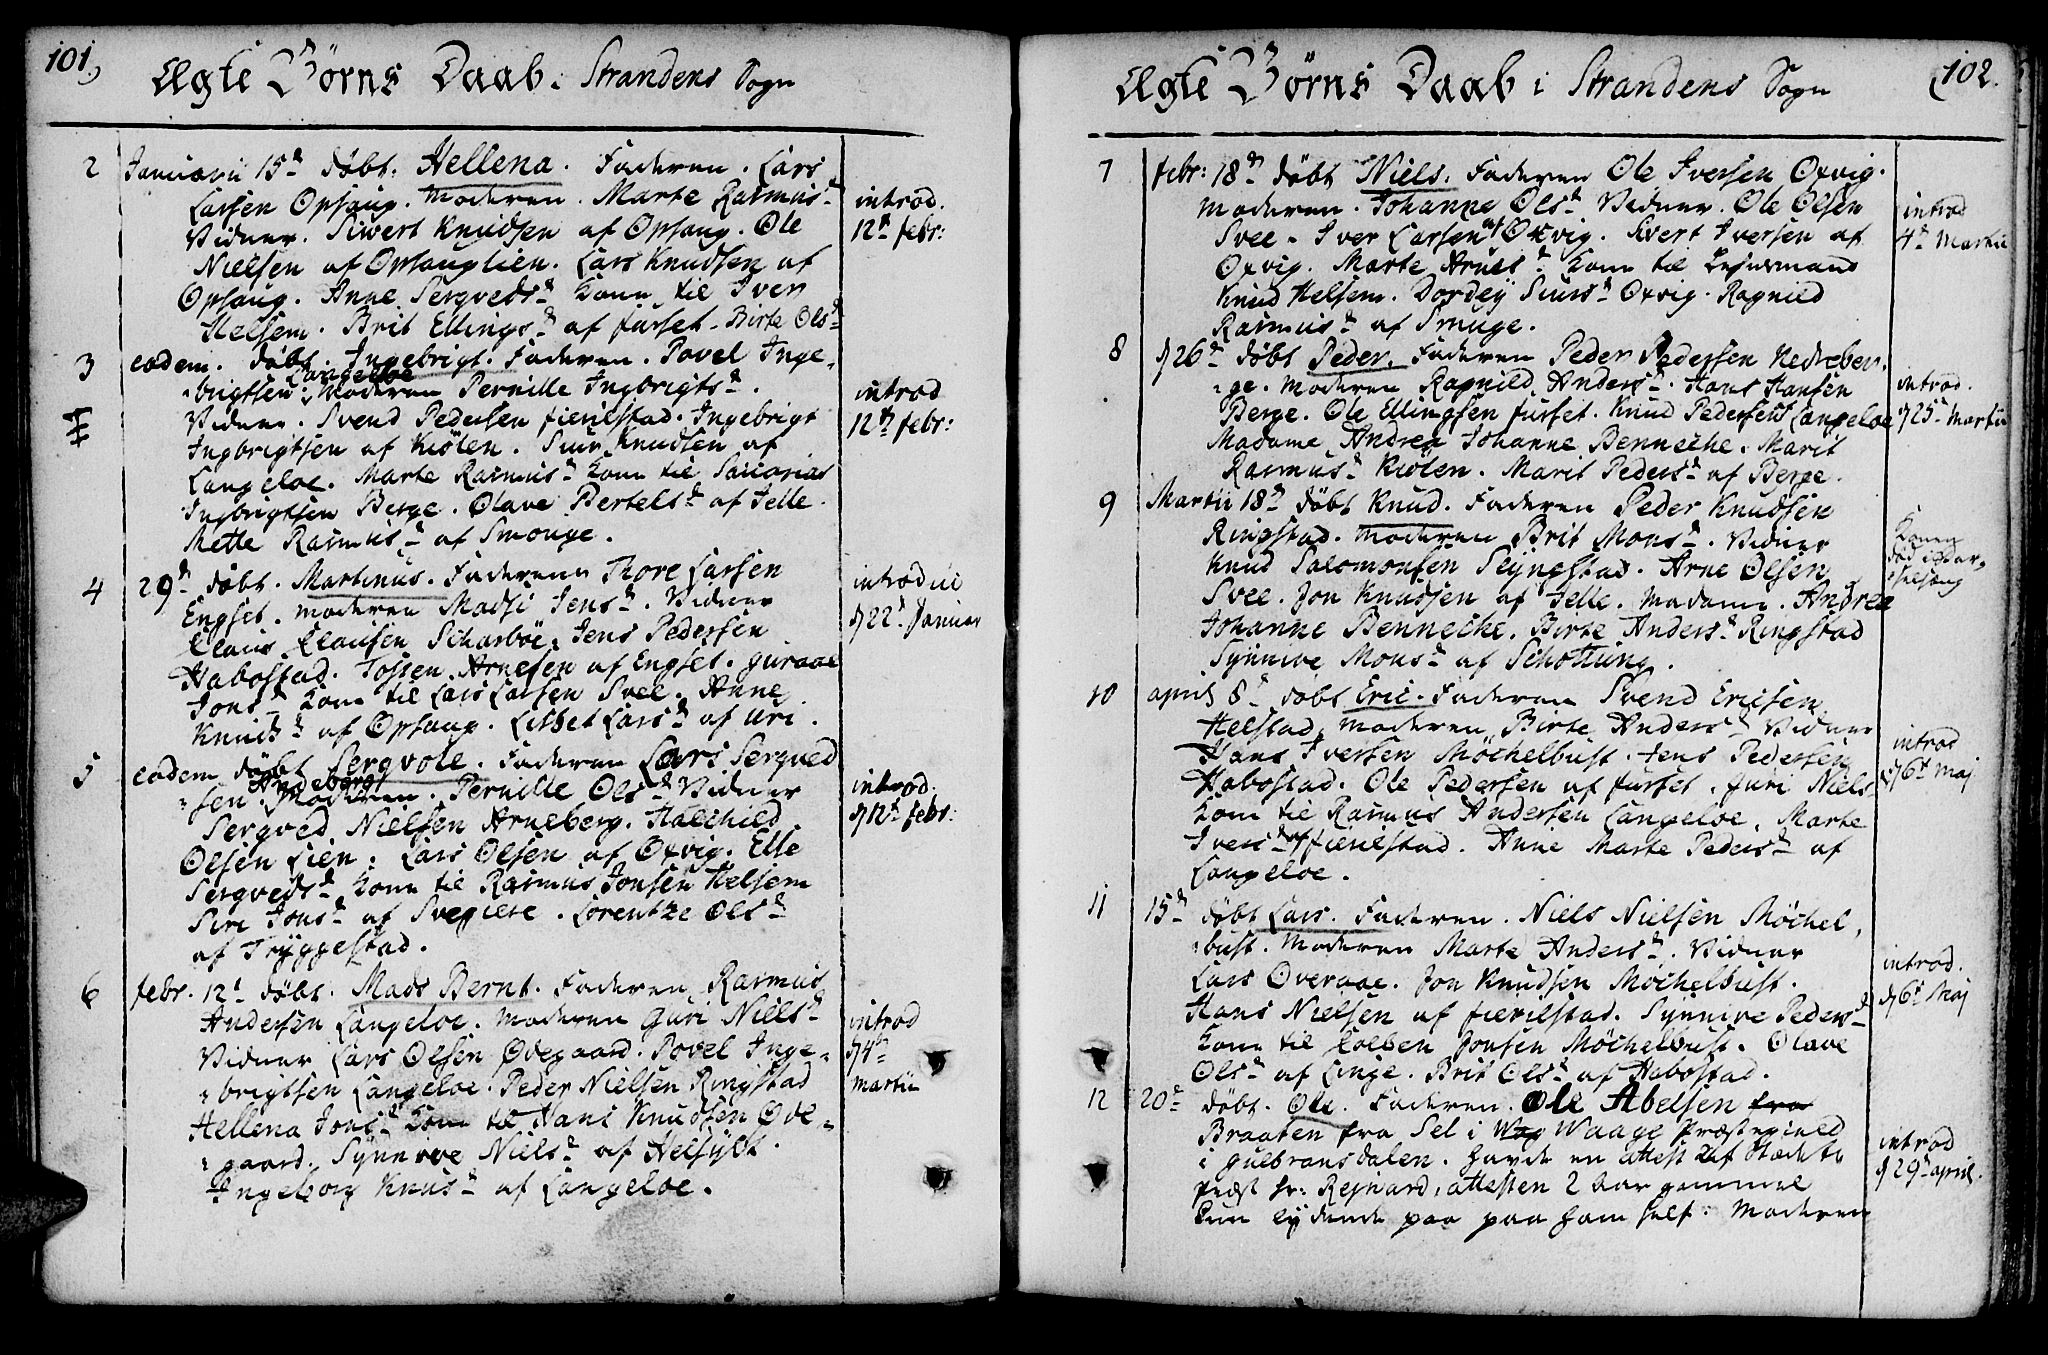 101,
Ægte Börns Daab i Strandens Sogn
2 Januarii 15de döbt. Hellena. Faderen. Lars
Larsen Opsaug. Moderen. Marte Rasmusd.
Vidner. Siwert Knudsen af Opsaug. Ole
Nielsen af Opsauglien. Lars Knudsen af
Opsaug. Anne Sergvedsd. Kone til Iver
Helsem. Brit Ellingsd. af Furset. Birte Olsd.
introd.
12te febr:
3 eodem. döbt. Ingebrigt. Faderen. Povel Inge-
brigtsen Langeloe. Moderen Pernille Ingbrigtsd.
Vidner. Svend Pedersen fierilstad. Ingebrigt
Ingbrigtsen af Kiölen. Siur Knudsen af
Langeloe. Marte Rasmusd. Kone til Sacarias
Ingbrigtsen Berge. Olave Bertelsd. af Jelle.
Mette Rasmusd. af Smouge.
introd
12te febr:
4 29de döbt. Martinus. Faderen Thore Larsen
Engset. Moderen Madsi Jensd. Vidner
Claus Clausen Scharböe. Jens Pedersen
Habostad. Tossen Arnesen af Engset. Guraae
Jonsd. Kone til Lars Larsen Svee. Anne
Knudsd. af Opsaug. Lisbet Larsd. af Uri.
introd
d 22de Januar
5 eodem döbt Sergvole. Faderen Lars Sergved
sen Andeberg. Moderen. Pernille Olsd. Vidner
Sergved Nielsen Arneberg. Halchild
Olsen Lien. Lars Olsen af Oxvig. Elle
Sergvedsd. Kone til Rasmus Jonsen Helsem
Siri Jonsd. af Svegiere. Lorentze Olsd.
af Tryggestad.
introd.
d 12te febr:
6 febr. 12te döbt. Mads Bernt. Faderen Rasmus
Andersen Langeloe. Moderen Guri Nielsd.
Vidner Lars Olsen Ødegaard. Povel Inge-
brigtsen Langeloe. Peder Nielsen Ringstad
Hellena Jonsd. Kone til Hans Knudsen Öde-
gaard. Synnove Nielsd. af Helsydt.
Ingeborg Knusd. af Langeloe.
introd
d 4de
martii
Ægte Börns Daab i Strandens Sogn
102.
7 febr: 18de döbt Niels. Faderen Ole Iversen Oxvig.
Moderen. Johanne Olsd. Vidner. Ole Olsen
Svee. Iver Larsen af Oxvig. Sivert Iversen af
Oxvig. Marte Arnesd. Kone til Lensmand
Knud Helsem. Dordey Siursd. Oxvig. Ragnild
Rasmusd. af Smuge.
introd
4de Martii
8 d 26de döbt Peder. Faderen Peder Pedersen Nedreber-
ge. Moderen Ragnild Andersd. Hans Hansen
Berge. Ole Ellingsen Furset. Knud Pedersen Langeloe
Madame Andrea Johanne Benneche. Marit
Rasmusd. Kiölen. Marit Pedersd. af Berge.
introd.
d 25de Martii
9 Martii 18de döbt Knud. Faderen Peder Knudsen
Ringstad. Moderen Brit Monsd. Vidner
Knud Salomonsen Slyngstad. Arne Olsen
Svee. Jon Knudsen af Jelle. Madame. Andrea
Johanne Benneche. Birte Andersd. Ringstad
Synnive Monsd. af Schottung.
Konen
död i Bar-
selsäng
10 april 8de döbt Eric. Faderen Svend Ericsen
Helstad. Moderen Birte Andersd. Vidner
Hans Iversen Möchelbust. Jens Pedersen
Habostad. Ole Pedersen af Furset. Juri Nielsd.
Kone til Rasmus Andersen Langeloe. Marte
Iversd. af fierilstad. Anne Marte Pedersd. af
Langeloe.
introd
d 6te Maj
11 15de döbt Lars. Faderen. Niels Nielsen Möchel
bust. Moderen Marte Andersd. Vidner
Lars Overaae. Jon Knudsen Möchelbust.
Hans Nielsen af fierilstad. Synnive Pedersd.
Kone til Colben Jonsen Möchelbust. Olave
Olsd. af Linge. Brit Olsd. af Habostad.
introd.
d 6te Maj
12 20de döbt. Ole. Faderen. Ole Abelsen fra
Braaten fra Sel i Wag Waage Præstegield
i Gulbransdalen. Havde en attest af Stædets
Præst Hr: Rejnard, attesten 2 Aar gammel
kun lydende paa paa ham self. Moderen
introd
d 29de april.